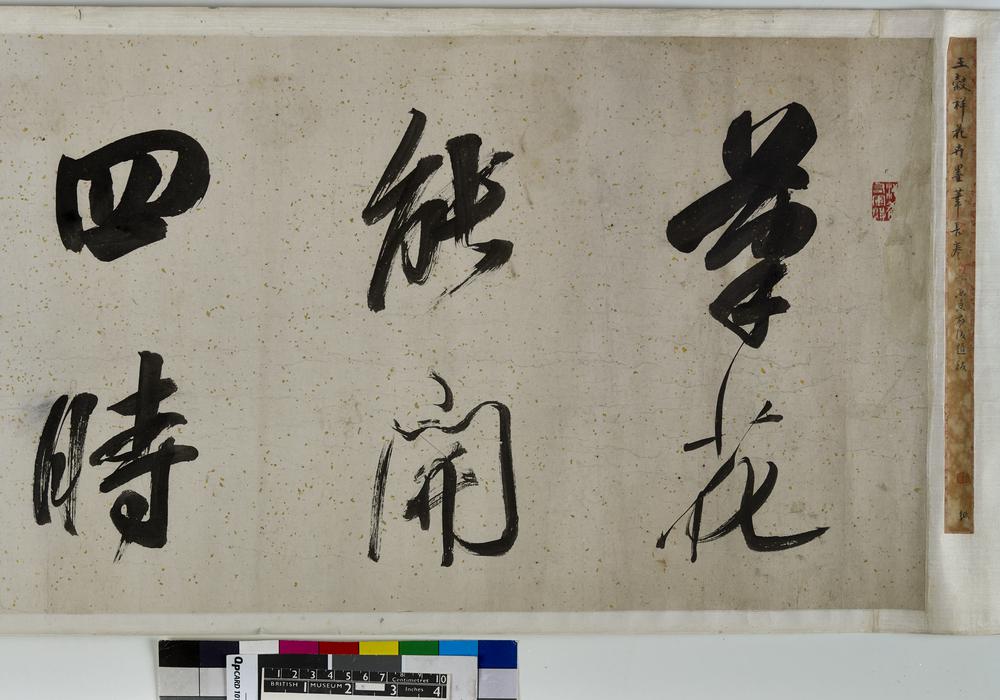 筆花
能開
四時
王穀祥花卉墨筆長卷
BRITISH MUSEUM
1 2 3 4 5 6 7 8 9 10
Centimetres
1 2 3 4
Inches
QPCARD 101